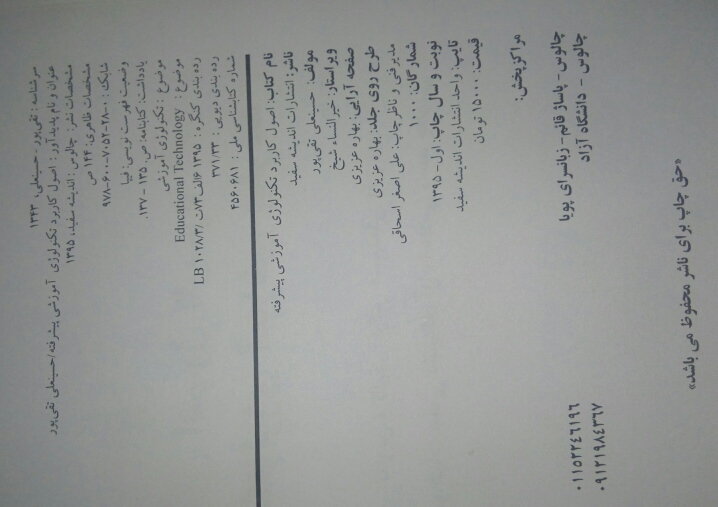 سرشناسه : تقی‌پور ، حسینعلی، ۱۳۴۳
عنوان و نام پدیدآور : اصول کاربرد تکنولوژی آموزشی پیشرفته/حسینعلی تقی‌پور
مشخصات نشر: چالوس : اندیشه سفید، ۱۳۹۵
مشخصات ظاهری: ۱۴۴ ص
شابک : ۰-۲۸-۷۰۵۲-۶۰۰-۹۷۸
وضعیت فهرست نویسی: فیپا
یادداشت: کتابنامه: ص. ۱۳۵ - ۱۳۷.
موضوع : تکنولوژی آموزشی
موضوع : Educational Technology
رده بندی کنگره : ۱۳۹۵ ۶الف۷۳ت/ LB ۱۰۲۸/۳
رده بندی دیویی : ۳۷۱/۳۳
شماره کتابشناسی ملی : ۴۵۶۰۶۸۱
نام کتاب: اصول کاربرد تکنولوژی آموزشی پیشرفته
ناشر: انتشارات اندیشه سفید
مولف: حسینعلی تقی‌پور
ویراستار: خیرالنساء شیخ
صفحه آرایی: بهاره عزیزی
طرح روی جلد: بهاره عزیزی
مدیرفنی و ناظر چاپ: علی اصغر اسحاقی
شمارگان: ۱۰۰۰
نوبت و سال چاپ: اول- ۱۳۹۵
تایپ: واحد انتشارات اندیشه سفید
قیمت: ۱۵۰۰۰ تومان
مراکز پخش:
چالوس - پاساژ قائم - زبانسرای پویا ۰۱۱۵۲۲۴۶۱۹۶
چالوس - دانشگاه آزاد ۰۹۱۲۱۹۸۴۳۶۷
«حق چاپ برای ناشر محفوظ می باشد»